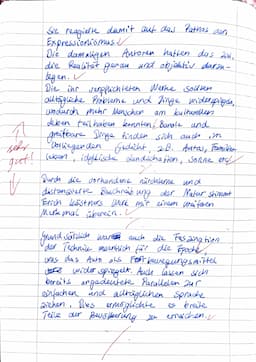 Sie reagierte damit auf das Pathos des
Expressionismus. ✓
Die damaligen Autoren hatten das Ziel,
die Realität genau und objektiv darzu-
legen. ✓
Die ihr verpflichteten Werke sollten
alltägliche Probleme und Dinge widerspiegeln,
wodurch mehr Menschen am kulturellen
Leben teilhaben konnten. Banale und
greifbare Dinge finden sich auch im
vorliegenden Gedicht, z.B. Autos,
idyllische Landschaften, Sonne etc. ✓
sehr
gut!
Durch die vorhandene nüchterne und
distanzierte Beschreibung der Natur stimmt
Erich Kästners Werk mit einem weiteren
Merkmal überein. ✓
Grundsätzlich war auch die Faszination
der Technik für die Epoche ✓
was das Auto als Fortbewegungsmittel
widerspiegelt. Auch lassen sich
bereits angedeutete Parallelen zur
einfachen und alltäglichen Sprache
ziehen. Dies ermöglichte es breite
Teile der Bevölkerung zu erreichen. ✓